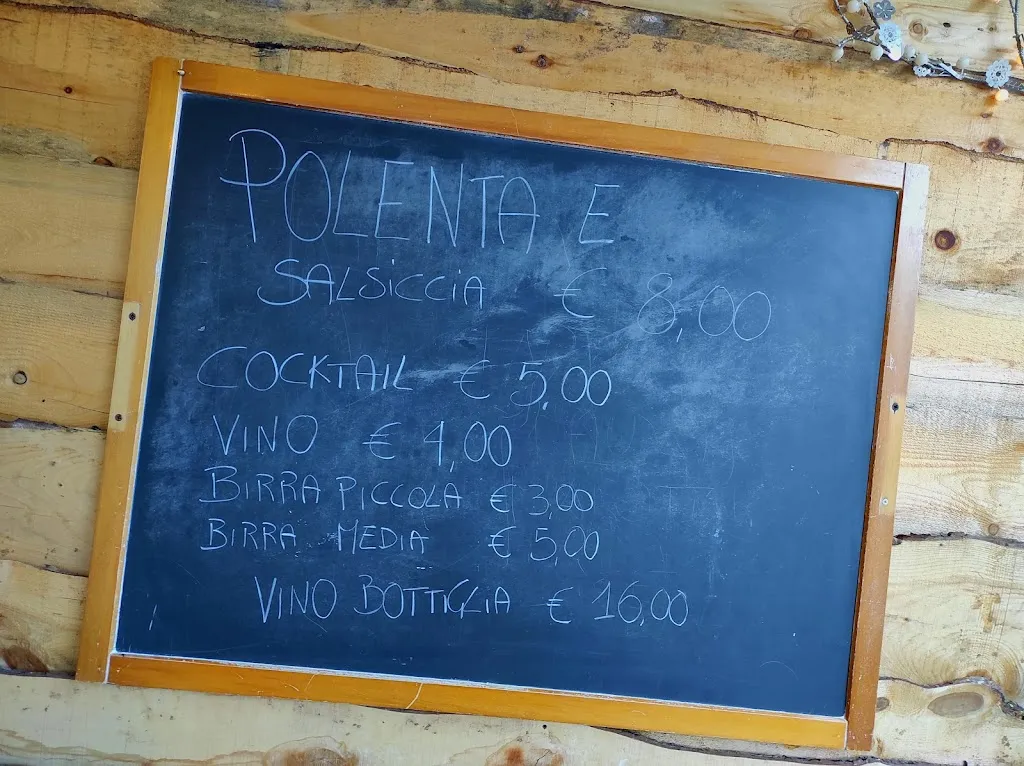 POLENTA E
SALSICCIA € 8,00
COCKTAIL € 5,00
VINO € 4,00
BIRRA PICCOLA € 3,00
BIRRA MEDIA € 5,00
VINO BOTTIGLIA € 16,00